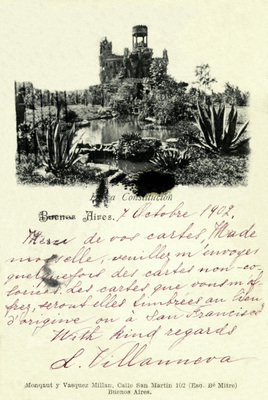 Constitucion
Buenos Aires. 7 Octobre 1902.
Merci de vos cartes, Made
moiselle, veuillez m'envoyer
quelquefois des cartes non-co-
loriees. Les cartes que vous m'of-
frez, seront elles timbrées au lieu
d'origine ou à San Francisco
With kind regards
L. Villanueva
Monqaut y Vasquez Millan, Calle San Martin 102 (Esq. Bé Mitre)
Buenos Aires.